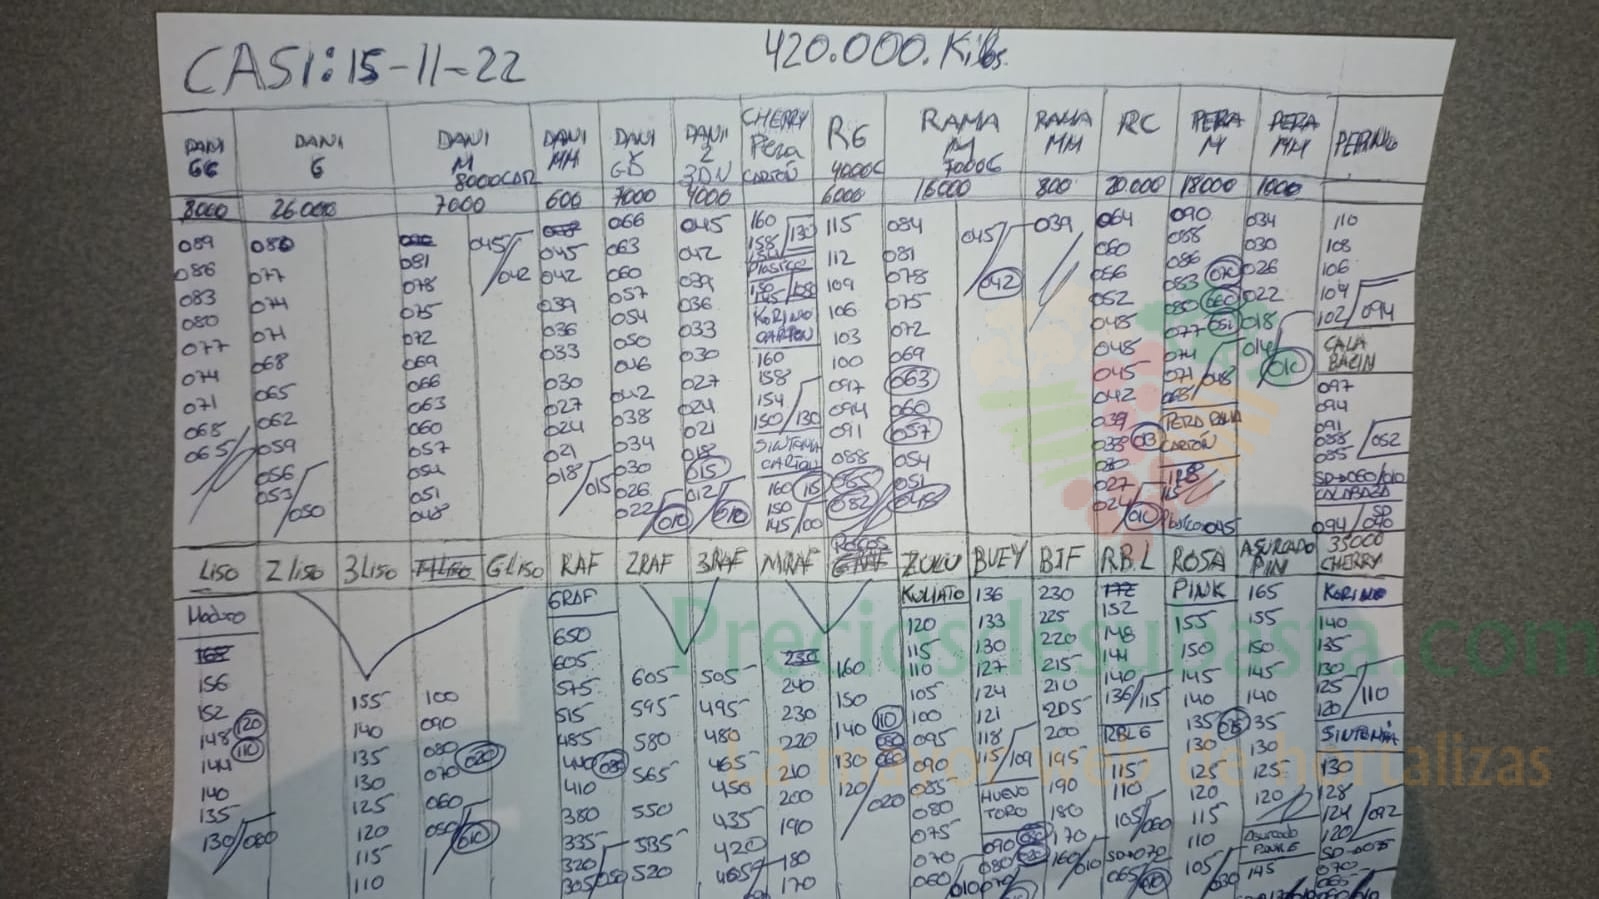 CASI: 15-11-22 420.000. Kilos.
DANI GG DANI G DANI M 8000CAR DANI MM DANI GD DANI 2 3DN CHERRY Pera CARTÓN RG 4000C RAMA M 7000C RAMA MM RC PERA M PERA MM PERINO
8000 26.000 7000 600 7000 4000 6000 16000 800 20.000 18000 1000
089
086
083
080
077
074
071
068
065
086
077
074
071
068
065
062
059
056
053/050
081
078
075
072
069
066
063
060
057
054
051
048
045/042
045
042
039
036
033
030
027
024
021
018/015
066
063
060
057
054
050
046
042
038
034
030
026
022/010
045
042
039
036
033
030
027
024
021
018
015
012/010
160
158/130
Plastico
KORINO
CARTON
160
158
154
150/130
SINTONIA
CARTON
160 115
150
145/100
115
112
109
106
103
100
097
094
091
088
085
082
084
081
078
075
072
069
063
060
057
054
051
045/
042
039
064
060
056
052
048
045
042
039
030
027
024/010
090
088
086
083
080 060
077 051
074
071/048
068
PERA RAMA
CARTÓN
Plastico 045
034
030
026
022
018
014
010
110
108
106
104
102/094
CALA
BACIN
097
094
091
088
085/052
SD→060/010
CALABAZA
094/090
LISO 2 LISO 3 LISO GLISO RAF 2RAF 3RAF MRAF Roscos ZULU BUEY BIF RBL ROSA ASURCADO PIN 35000 CHERRY
Maduro
156
152
148 120
144 110
140
135
130/060
155
140
135
130
125
120
115
110
100
090
080 020
070
060
050/010
GRAF
650
605
575
515
485
440
410
380
335
320
305/050
605
595
580
565
550
535
520
505
495
480
465
450
435
420
405
240
230
220
210
200
190
180
170
160
150
140 110
130 060
120/020
KUMATO
120
115
110
105
100
095
090
085
080
075
070
060/010
136
133
130
127
124
121
118
115/109
HUEVO
TORO
090
080
070
230
225
220
215
210
205
200
195
190
180
170
160/010
152
148
144
140
136/115
RBL G
115
110
105/060
SD→070
065/010
PINK
155
150
145
140
135
130
125
120
115
110
105/030
165
155
150
145
140
135
130
125
120
Asurcado
PINK G
145
KORINO
140
135
130
125
120/110
SINTONIA
130
128
124
120/092
SD→075
070
065
Preciosdesubasta.com
La mayor web de hortalizas